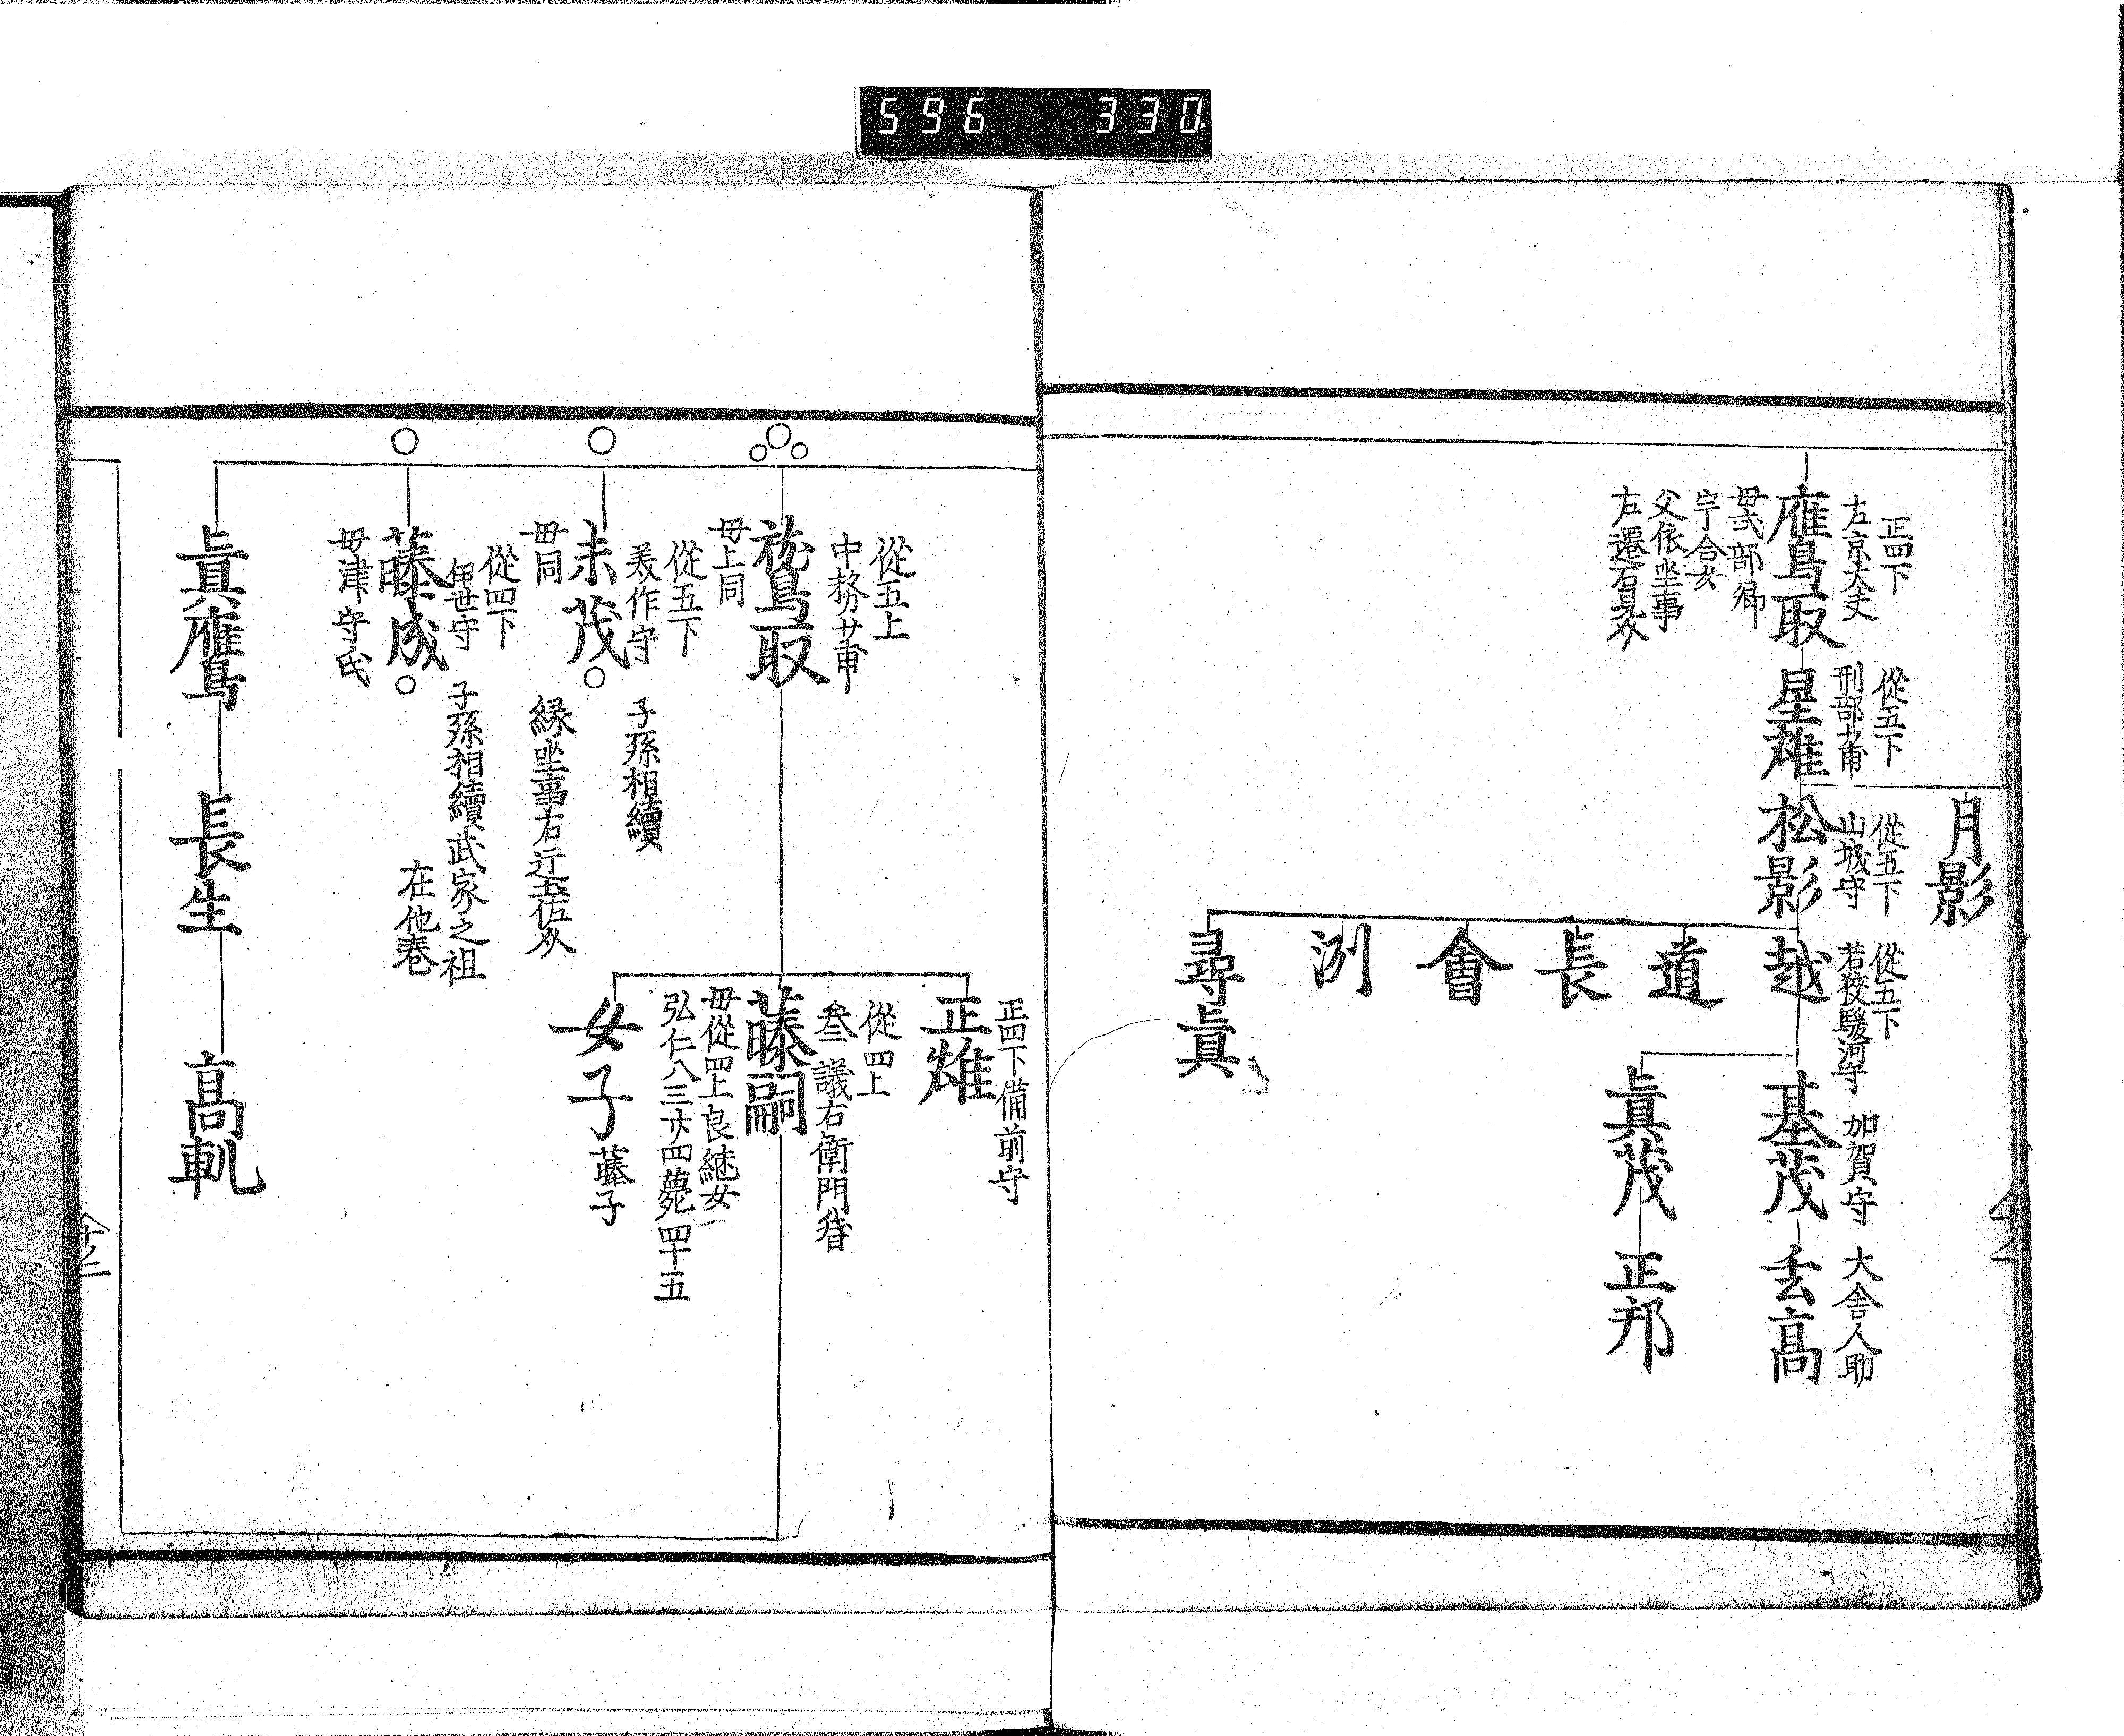 596 330
月影
正四下
左京大夫
鷹取
母式部卿
宇合女
父依坐事
左遷石見介
從五下
刑部少輔
星雄
從五下
山城守
松影
從五下
若狹駿河守
越
道
長
會
洌
尋眞
加賀守
基茂
眞茂
大舎人助
玄高
正邦
從五上
中務少甫
鷲取
母上同
從五下
美作守
末茂
母同
子孫相續
縁坐事右迁土佐介
從四下
伊世守
藤成
母津守氏
子孫相續武家之祖
在他巻
眞鷹
長生
高軏
正四下備前守
正雄
從四上
叅議右衛門督
藤嗣
母從四上良継女
弘仁八三廿四薨四十五
女子 藤子